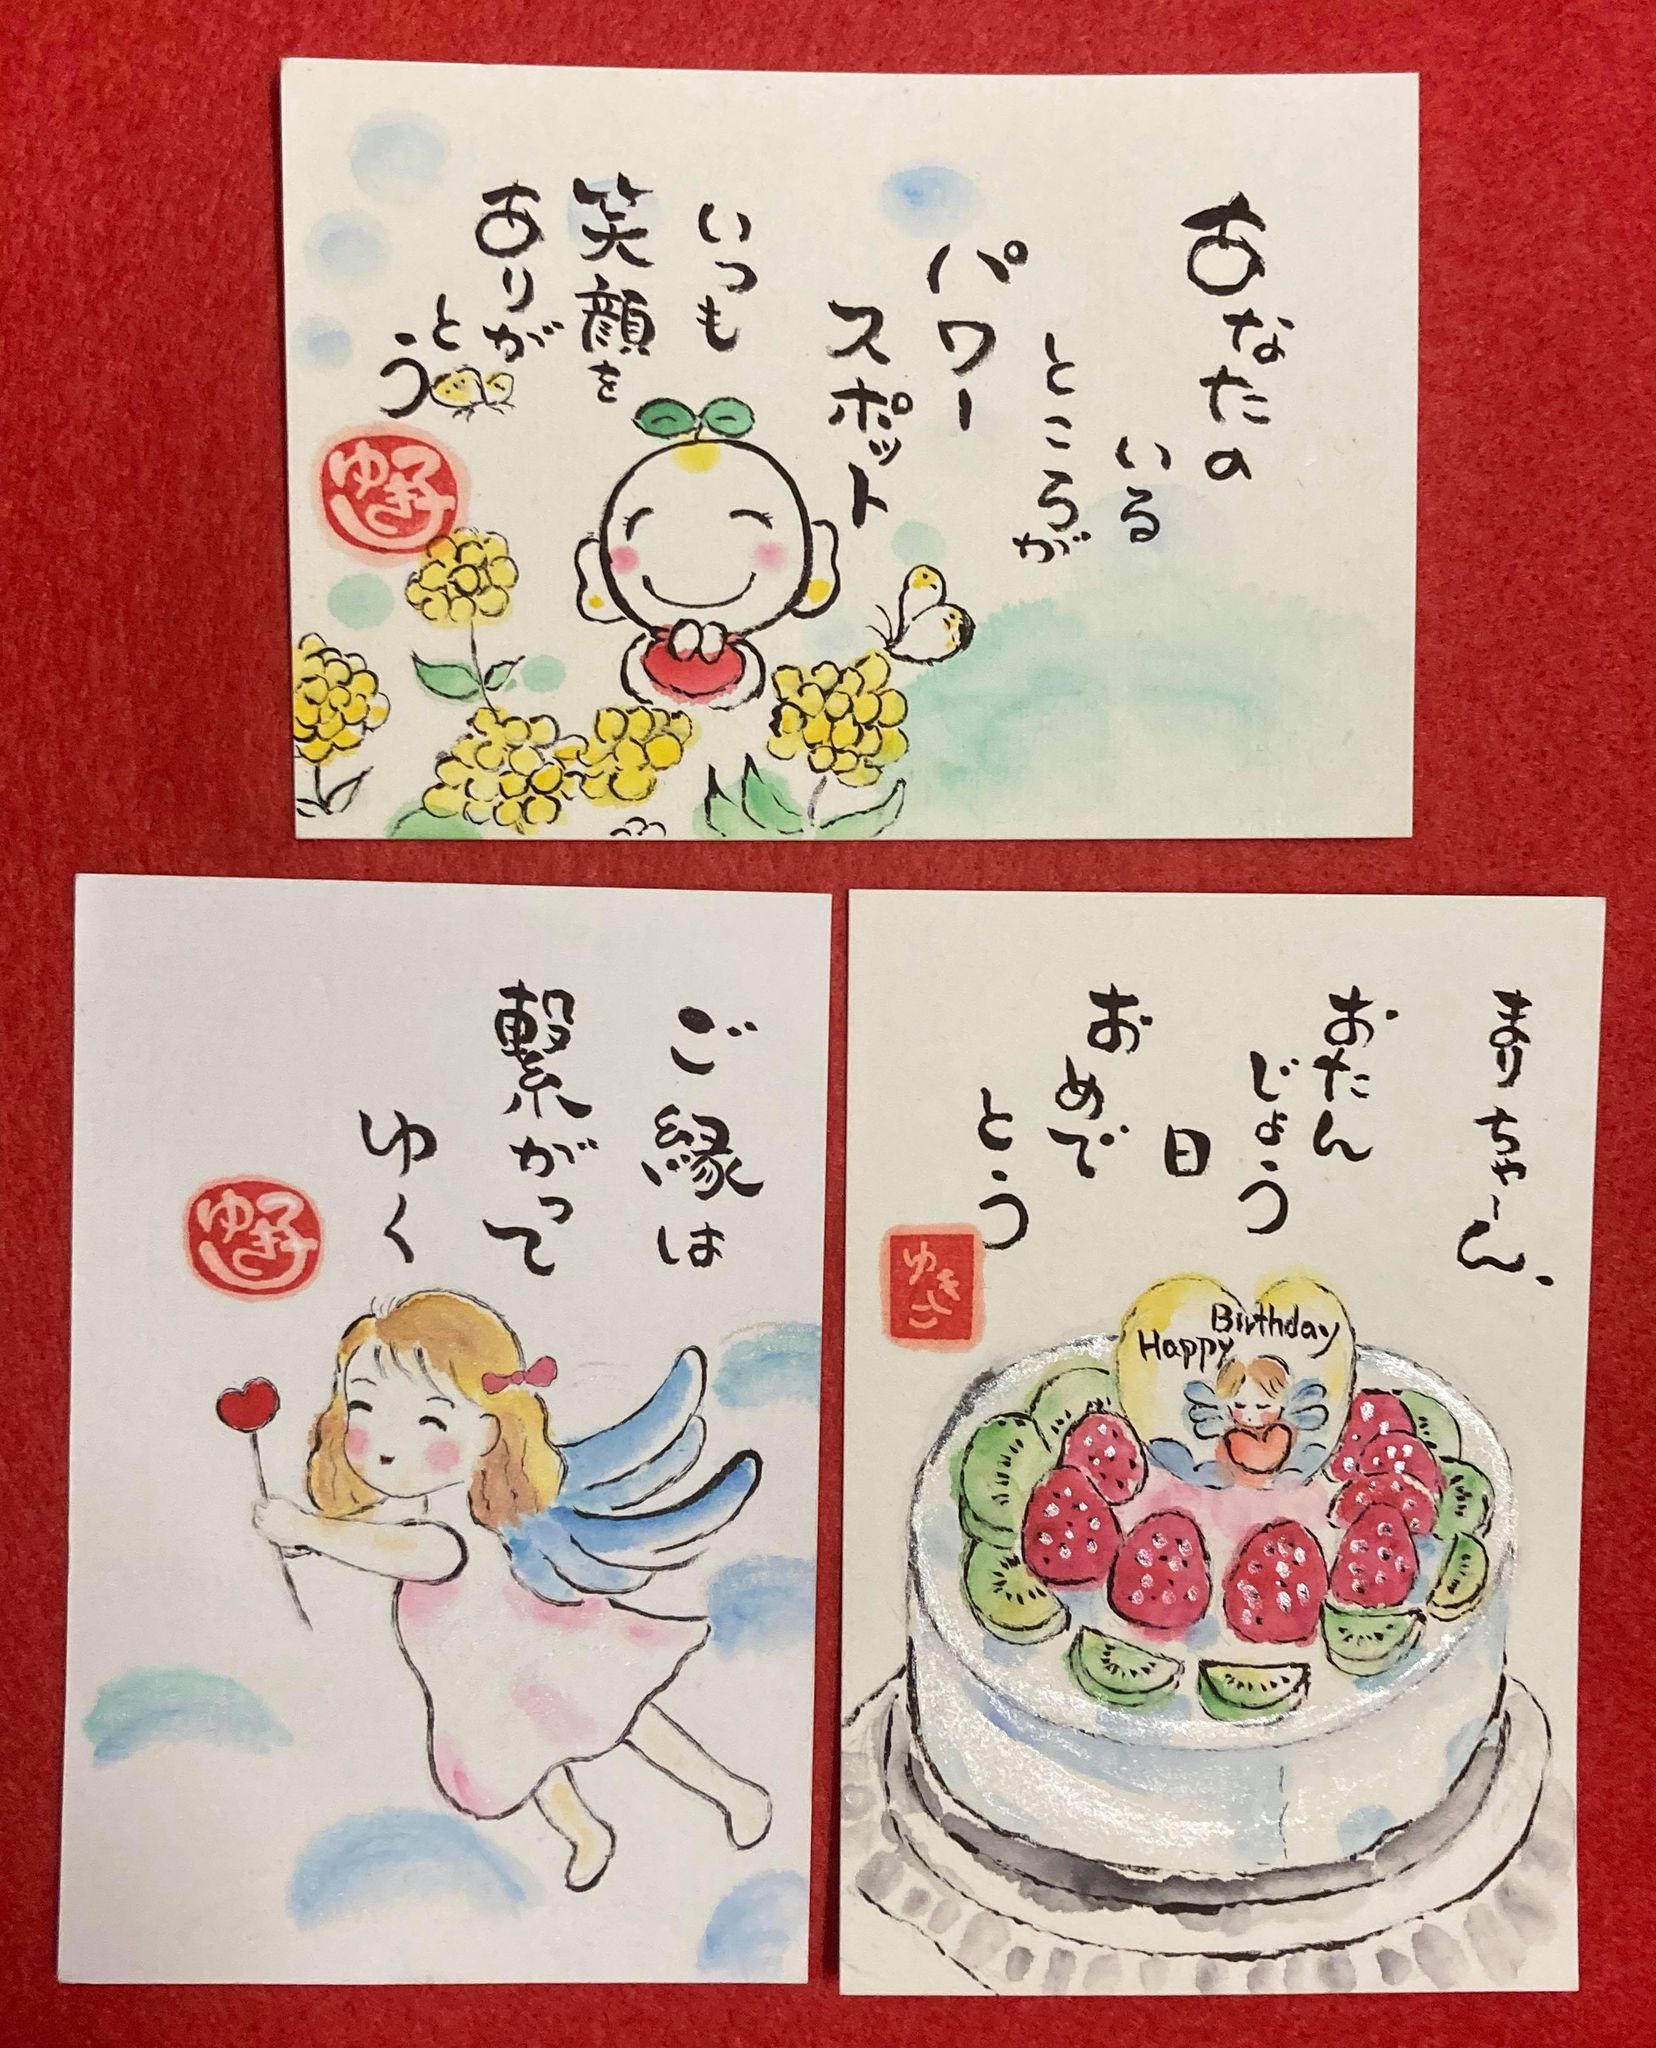 あなたの
いる
ところが
パワー
スポット
いつも
笑顔を
ありが
とう
ゆき子
ご縁は
繋がって
ゆく
ゆき子
まりちゃーん、
おたん
じょう
日
おめで
とう
ゆきこ
Happy
Birthday